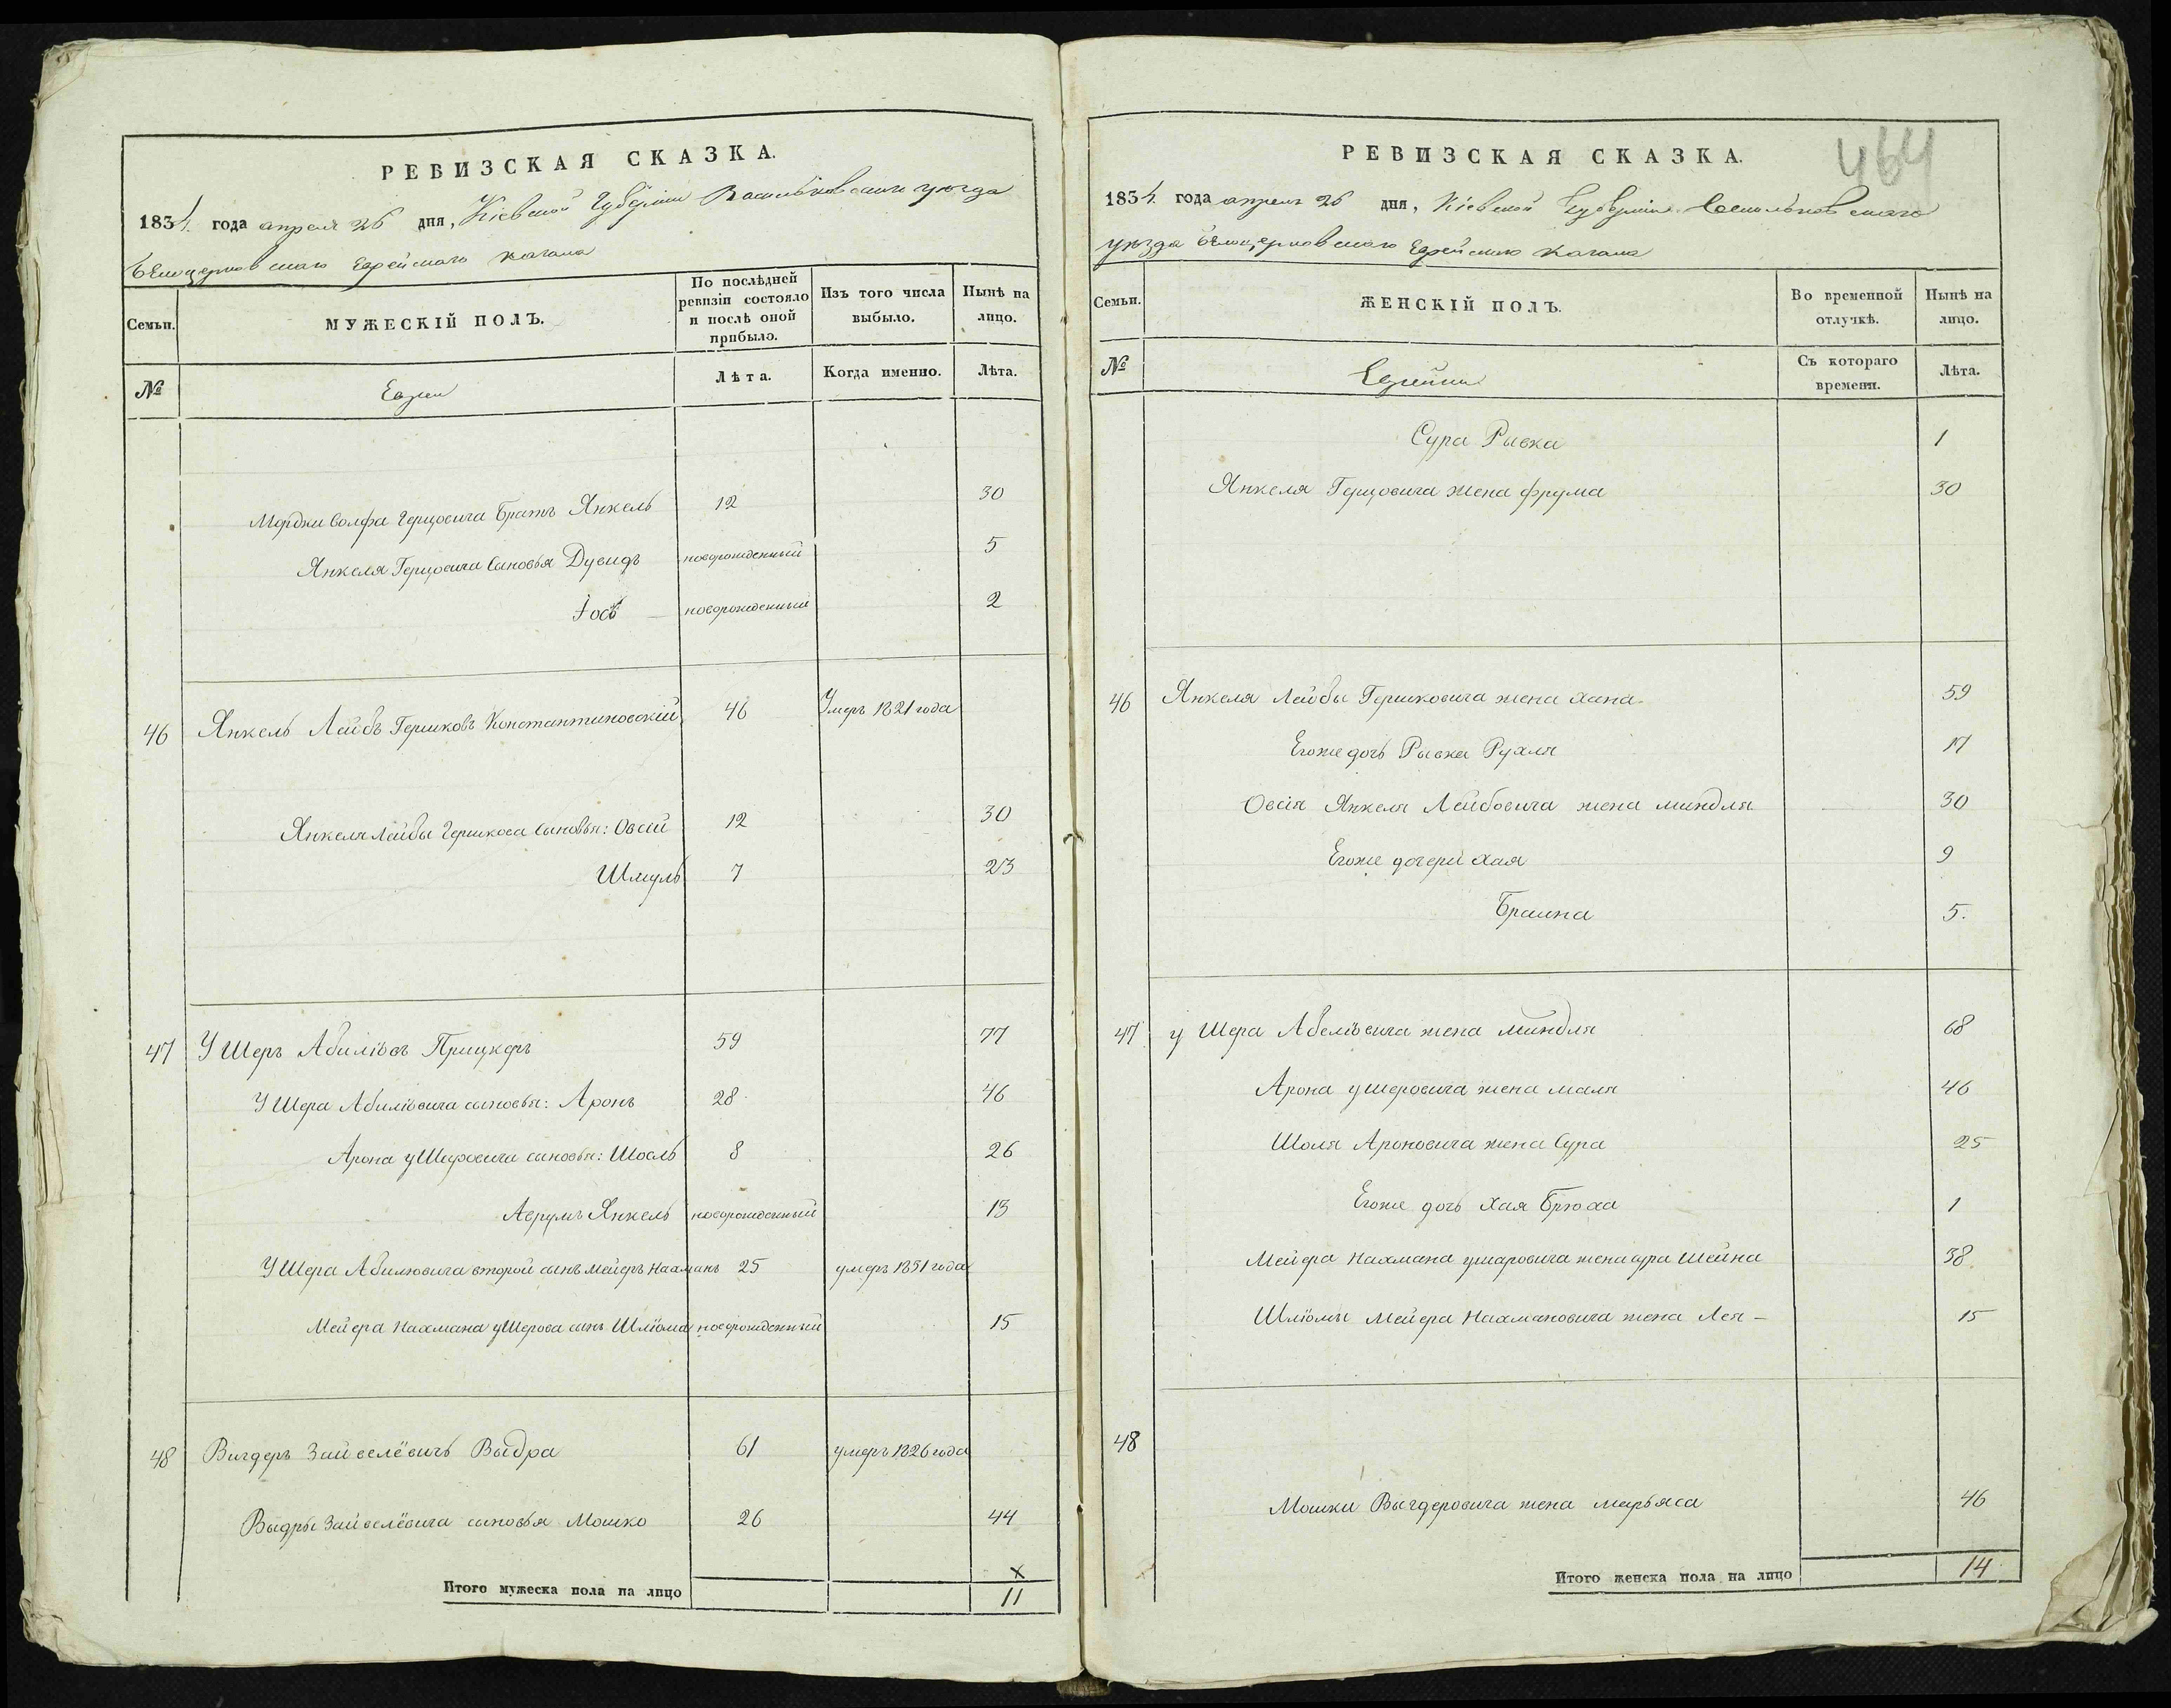 РЕВИЗСКАЯ СКАЗКА.
1834 года апреля 26 дня, Кіевской Губерніи Васильковскаго уезда
Бѣлоцерковскаго Еврейскаго Кагала
Семьи.
МУЖЕСКІЙ ПОЛЪ.
По послѣдней ревизіи состояло и послѣ оной прибыло.
Изъ того числа выбыло.
Нынѣ на лицо.
№
Евреи
Лѣта.
Когда именно.
Лѣта.
Мордки Волфа Герцовича Братъ Янкель 12 30
Янкеля Герцовича Сыновья Дувидъ новорожденный 5
Іось новорожденный 2
46 Янкель Лейбъ Гершковъ Константиновскій 46 Умеръ 1821 года
Янкеля Лейбы Гершкова Сыновья: Овсій 12 30
Шмуль 7 23
47 УШеръ Абиліовъ Прицкеръ 59 77
УШера Абиліовича сыновья: Аронъ 28 46
Арона уШеровича сыновья: Шоель 8 26
Аврумъ Янкель новорожденный 13
УШера Абиліовича второй сынъ Мейеръ Нахманъ 25 умеръ 1831 года
Мейера Нахмана уШерова сынъ Шліома новорожденный 15
48 Вигдеръ Зайвелёвичъ Выдра 61 умеръ 1826 года
Выдры Зайвелёвича сыновья Мошко 26 44
х
Итого мужеска пола на лицо 11
464
РЕВИЗСКАЯ СКАЗКА.
1834 года апреля 26 дня, Кіевской Губерніи Васильковскаго
уезда Бѣлоцерковскаго Еврейскаго Кагала
Семьи.
ЖЕНСКІЙ ПОЛЪ.
Во временной отлучкѣ.
Нынѣ на лицо.
№
Еврейки
Съ котораго времени.
Лѣта.
Сура Рывка 1
Янкеля Герцовича жена фрума 30
46 Янкеля Лейбы Гершковича жена хана 59
Егоже дочь Рывка Рухля 17
Овсія Янкеля Лейбовича жена миндля 30
Егоже дочери хая 9
Браина 5.
47 уШера Абеліовича жена миндля 68
Арона ушеровича жена маля 46
Шоля Ароновича жена Сура 25
Егоже дочь Хая Брюха 1
Мейера Нахмана ушаровича жена сура Шейна 38
Шліомы Мейера Нахмановича жена Лея – 15
48
Мошки Выгдеровича жена марьяса 46
Итого женска пола на лицо 14